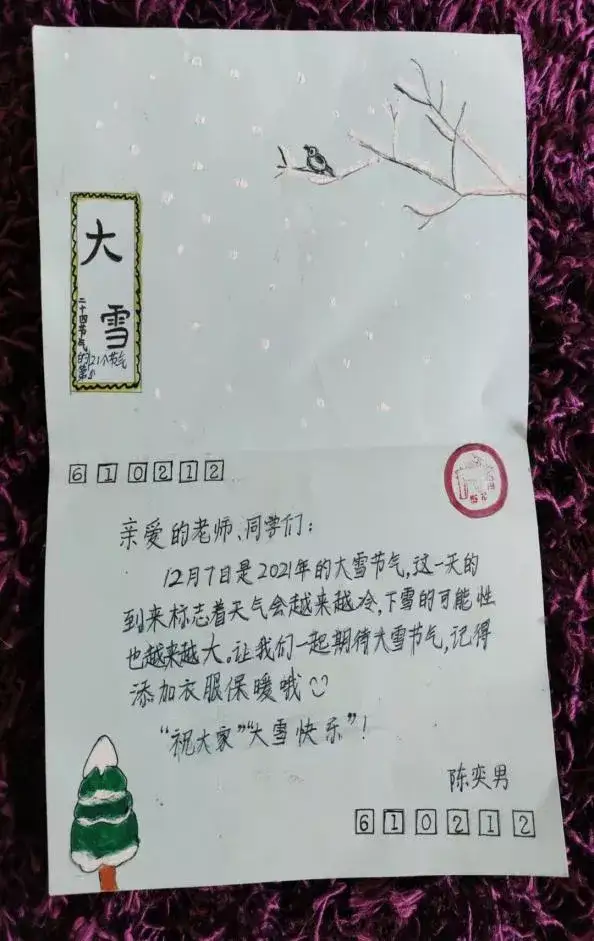 大雪
二十四节气
的第21个节气
610212
亲爱的老师、同学们：
12月7日是2021年的大雪节气，这一天的
到来标志着天气会越来越冷，下雪的可能性
也越来越大。让我们一起期待大雪节气，记得
添加衣服保暖哦
“祝大家”“大雪快乐”！
陈奕男
610212